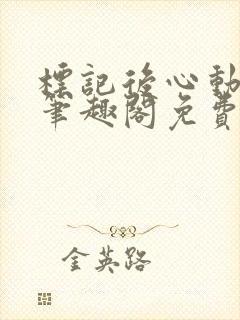 標記後心動
筆趣閣免費
金英路